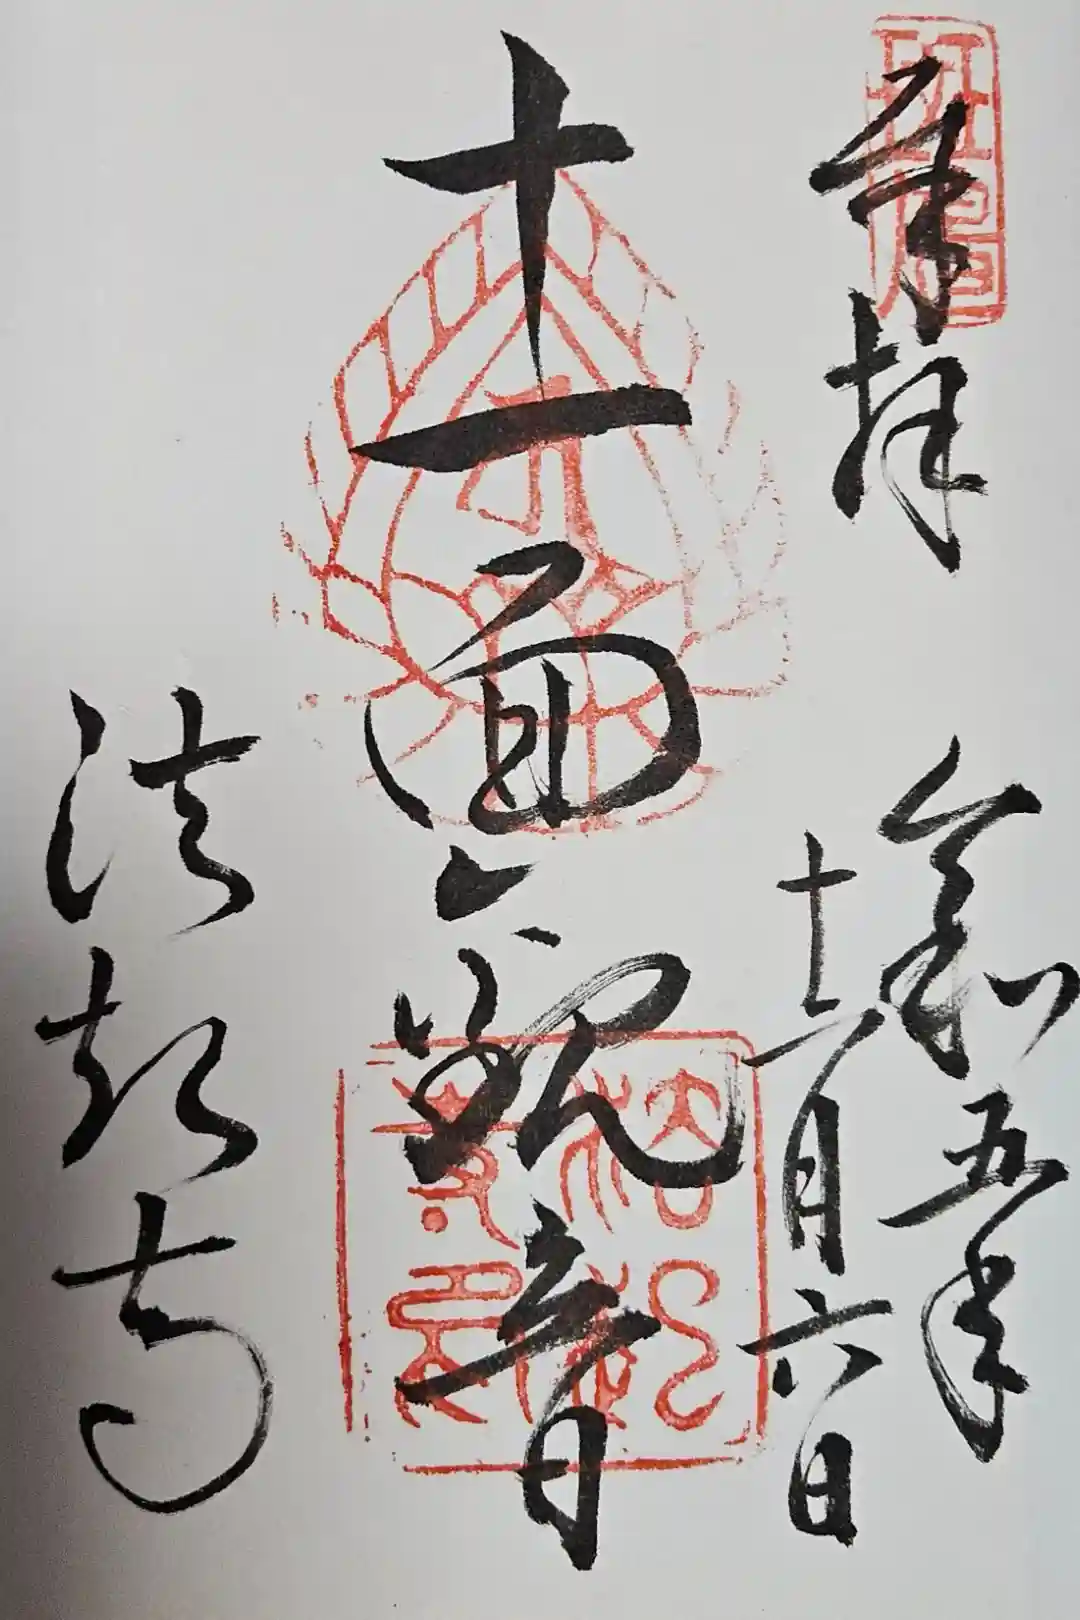 斑鳩
奉拝
令和五年
十二月六日
十一面観音
法起寺